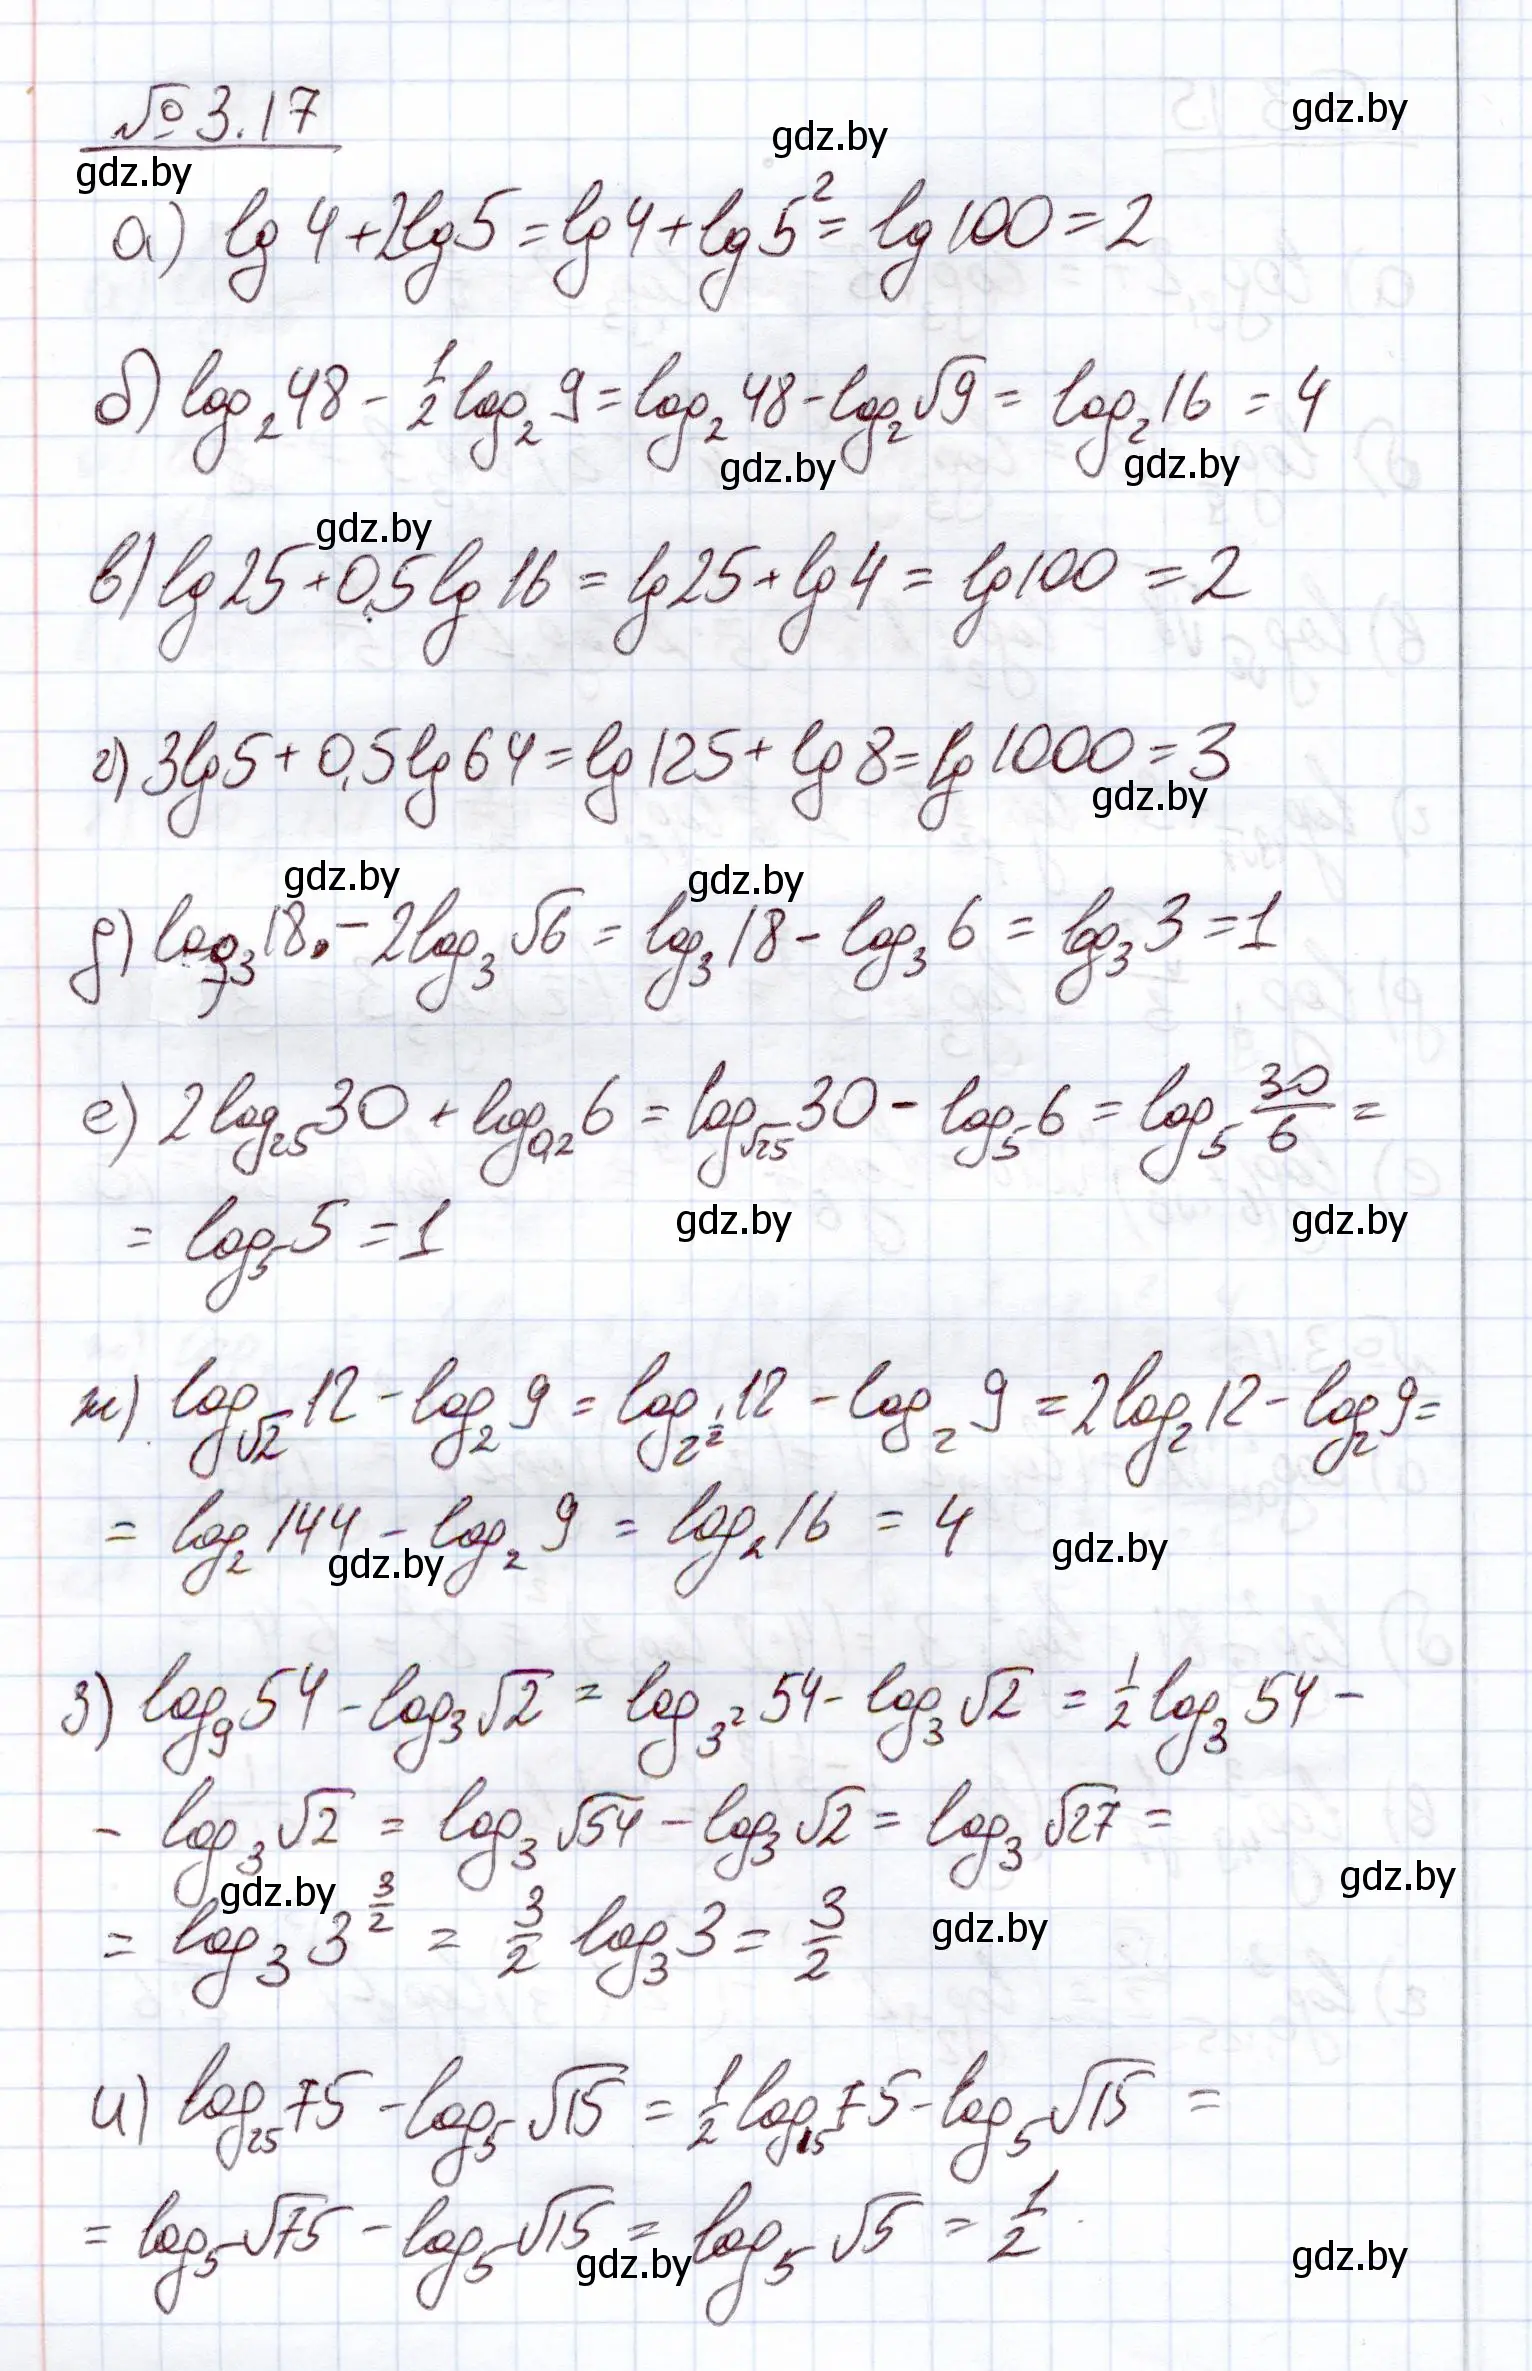 № 3.17
gdz.by gdz.by gdz.by
а) lg 4 + 2lg 5 = lg 4 + lg 5² = lg 100 = 2
б) log₂ 48 - 1/2 log₂ 9 = log₂ 48 - log₂ √9 = log₂ 16 = 4
gdz.by gdz.by
gdz.by
в) lg 25 + 0,5 lg 16 = lg 25 + lg 4 = lg 100 = 2
г) 3lg 5 + 0,5 lg 64 = lg 125 + lg 8 = lg 1000 = 3
gdz.by
gdz.by gdz.by
д) log₃ 18 - 2log₃ √6 = log₃ 18 - log₃ 6 = log₃ 3 = 1
е) 2log₂₅ 30 + log₀,₂ 6 = log_√25 30 - log₅ 6 = log₅ 30/6 =
= log₅ 5 = 1
gdz.by gdz.by
ж) log_√2 12 - log₂ 9 = log_2^(1/2) 12 - log₂ 9 = 2log₂ 12 - log₂ 9 =
= log₂ 144 - log₂ 9 = log₂ 16 = 4
gdz.by gdz.by
з) log₉ 54 - log₃ √2 = log_3² 54 - log₃ √2 = 1/2 log₃ 54 -
- log₃ √2 = log₃ √54 - log₃ √2 = log₃ √27 =
gdz.by gdz.by gdz.by
= log₃ 3^(3/2) = 3/2 log₃ 3 = 3/2
и) log₂₅ 75 - log₅ √15 = 1/2 log₅ 75 - log₅ √15 =
= log₅ √75 - log₅ √15 = log₅ √5 = 1/2
gdz.by gdz.by